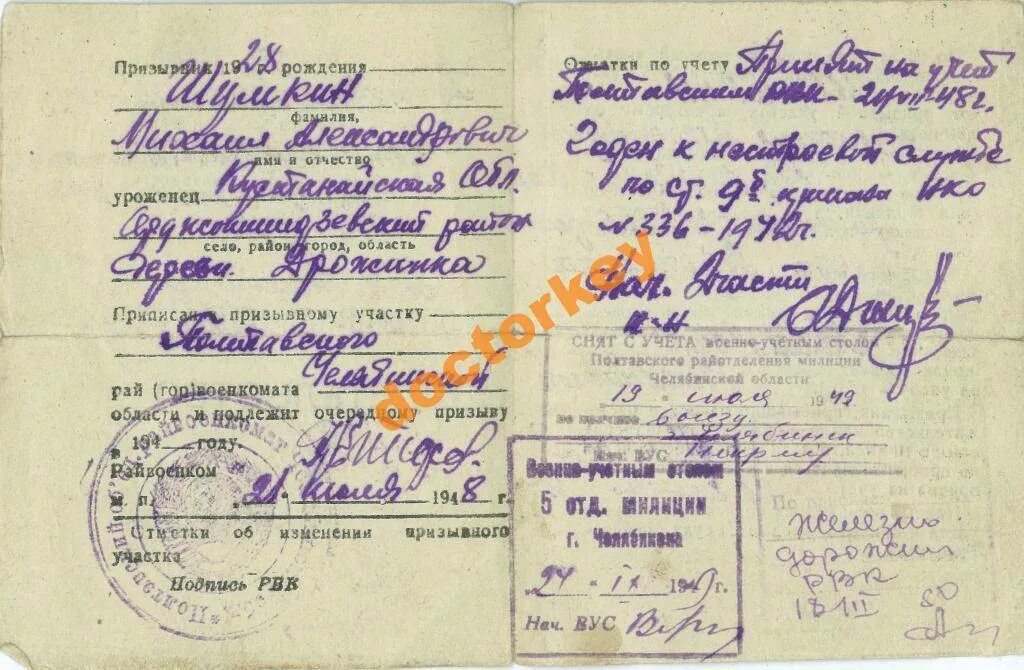 Призывник 1928 г. рождения
Шумкин
фамилия,
Михаил Александрович
имя и отчество
уроженец Кустанайская Обл.
район
село, район, город, область
Дрожинка
Приписан к призывному участку
Полтавского
рай (гор)военкомата Челябинской
области и подлежит очередному призыву
в 194 году.
Райвоенком
м.п. "21" июля 1948 г.
Отметки об изменении призывного
участка
Подпись РВК
Отметки по учету Принят на учет
Полтавским РВК 21/VII-48г.
Годен к нестроевой службе
по ст. 9б приказа НКО
№ 336-1942г.
Нач. 2 части
СНЯТ С УЧЕТА военно-учетным столом
Полтавского райотделения милиции
Челябинской области
19 июля 1949
по причине выезду
г. Челябинск
Нач. ВУС
Военно-учетным столом
5 отд. милиции
г. Челябинска
"24" IX 1949 г.
Нач. ВУС
По
Железно
дорожным
РВК
18 III 50
doctorkey